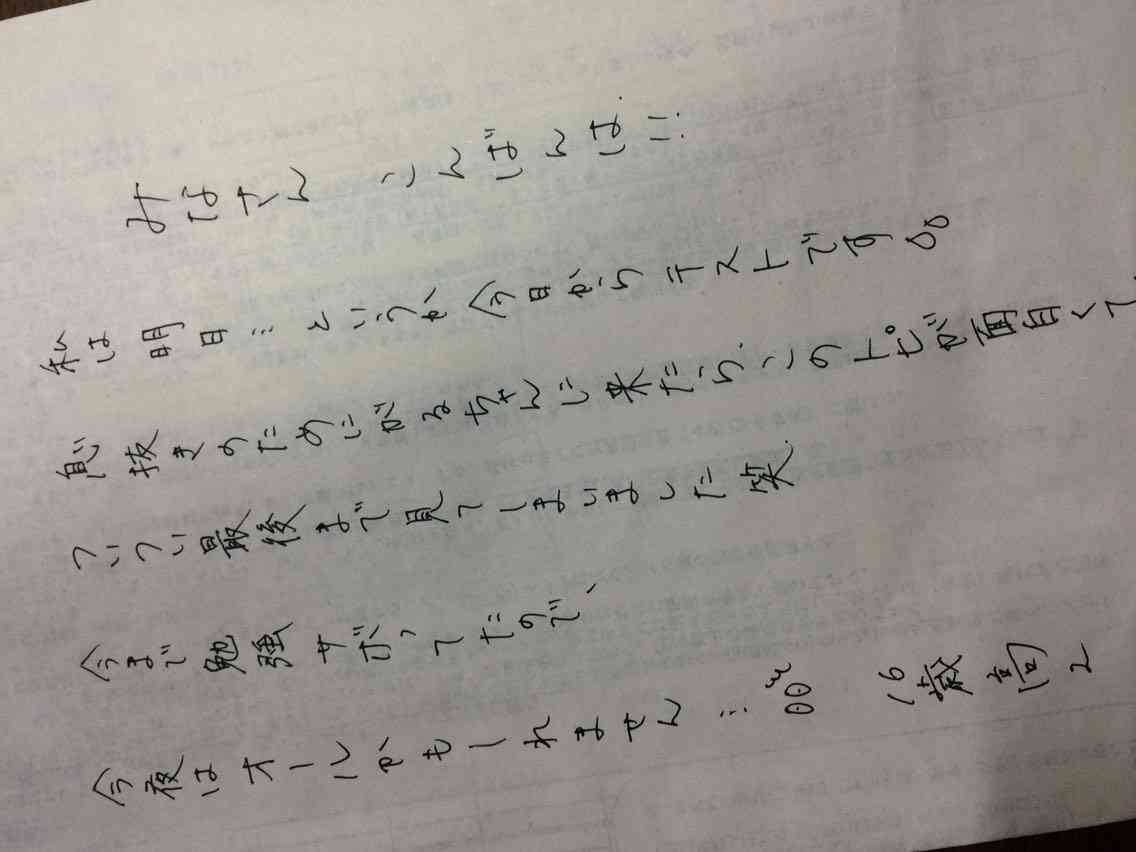 みなさん こんばんは::
私は明日…というか今日からテストです。。
息抜きのためにがるちゃんに来たらこのトピが面白くて、
ついつい最後まで見てしまいました笑.
今まで勉強サボってたので、
今夜はオールかもしれません… 16歳高2